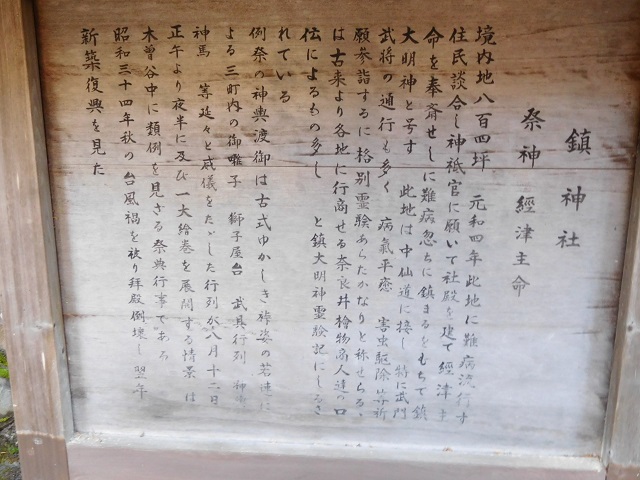 鎮神社
祭神 經津主命
境内地八百四坪 元和四年此地に難病流行す
住民談合し神祇官に願いて社殿を建て經津主
命を奉斎せしに難病忽ちに鎮まるをもちて鎮
大明神と号す 此地は中仙道に接し 特に武門
武将の通行も多く 病氣平癒 害虫駆除等祈
願参詣するに格別霊験あらたかなりと称せらる、
は古来より各地に行商せる奈良井檜物商人達の口
伝によるもの多し と鎮大明神霊験記にしるさ
れている
例祭の神輿渡御は古式ゆかしき 姿の若連に
よる三町内の御囃子 獅子屋台 武具行列
神馬 等延々と威儀をたゞした行列が八月十二日
正午より夜半に及び一大絵巻を展開する情景は
木曽谷中に類例を見ざる祭典行事である
昭和三十四年秋の台風禍を被り拝殿倒壊し翌年
新築復興を見た